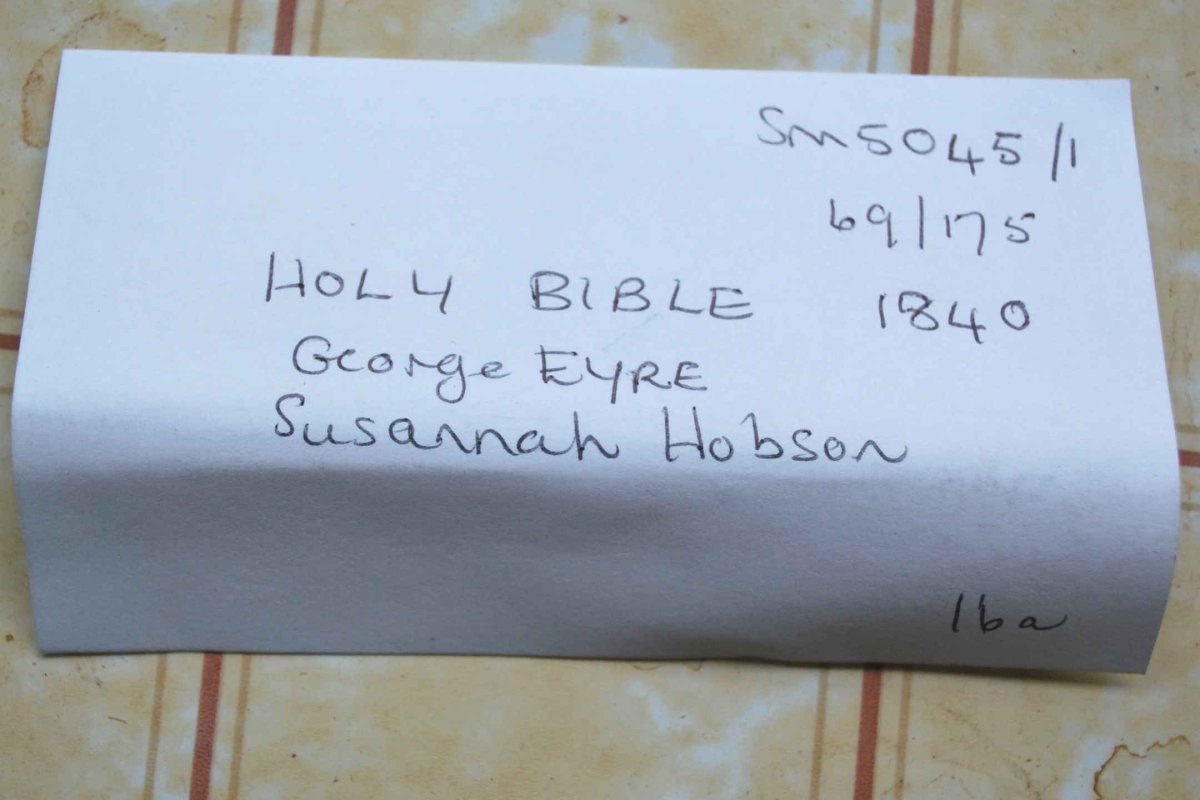 Sm5045/1
69/175
HOLY BIBLE 1840
George EYRE
Susannah Hobson
16a